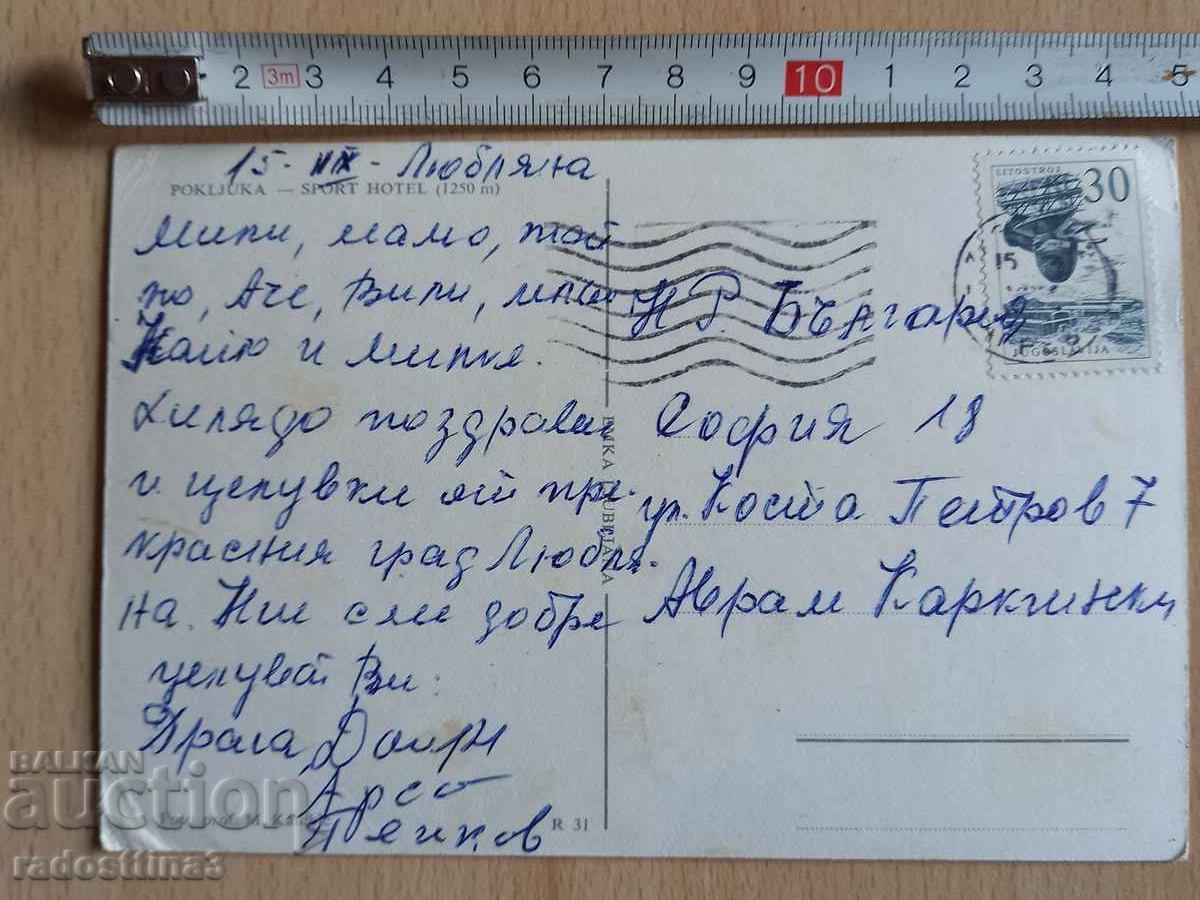 2 3m 3 4 5 6 7 8 9 10 1 2 3 4 5
15- - Любляна
POKLJUKA — SPORT HOTEL (1250 m)
Мили, мамо,
Аче, Вили,
и Милкя.
Хилядо поздрави
и целувки от пре-
красния град Любля-
на. Ние сме добре
целуват Ви:
Драга
Арсо
Пенков
R 31
LITOSTROJ
30
JUGOSLAVIJA
15
Н Р. България
София 18
ул. Коста Петров 7
Аврам
BALKAN
auction
radosttina3